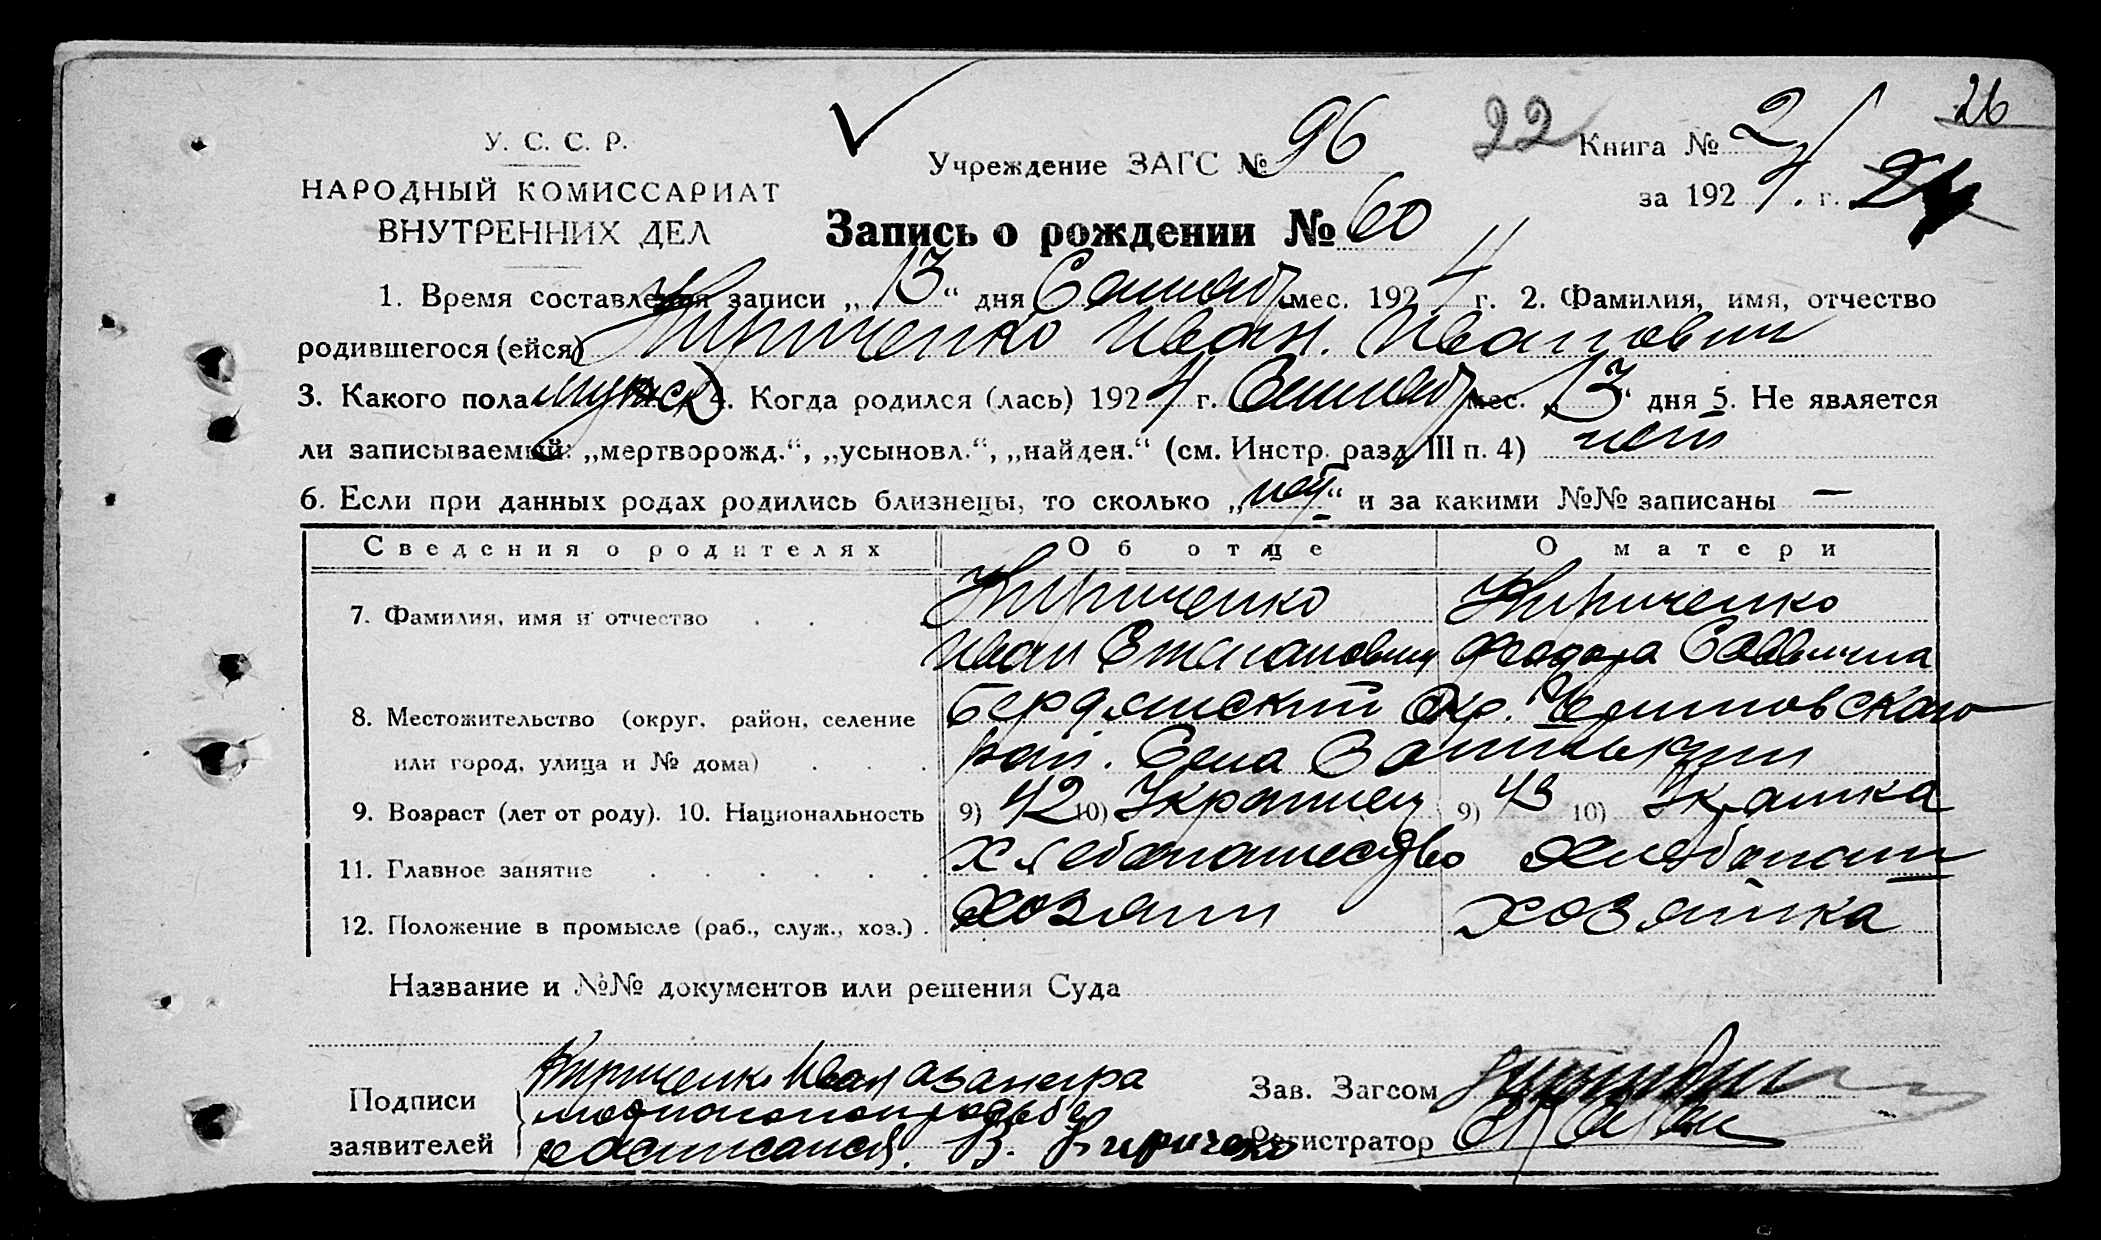 26
У. С. С. Р.
НАРОДНЫЙ КОМИССАРИАТ
ВНУТРЕННИХ ДЕЛ
Учреждение ЗАГС № 96
22
Книга № 2
за 1924 г.
Запись о рождении № 60
1. Время составления записи „13“ дня мес. 1924 г. 2. Фамилия, имя, отчество
родившегося (ейся) Кириченко Иван Иванович
3. Какого пола мужск 4. Когда родился (лась) 1924 г. мес. „13“ дня 5. Не является
ли записываемый: „мертворожд.“, „усыновл.“, „найден.“ (см. Инстр. разд. III п. 4) нет
6. Если при данных родах родились близнецы, то сколько „нет“ и за какими №№ записаны —
Сведения о родителях Об отце О матери
7. Фамилия, имя и отчество Кириченко Кириченко
Иван Степанович Феодора Саввична
8. Местожительство (округ, район, селение Бердянский Окр.
или город, улица и № дома) рай. Села
9. Возраст (лет от роду). 10. Национальность 9) 42 10) Украинец 9) 43 10)
11. Главное занятие хлебопашество хлебопаш
12. Положение в промысле (раб., служ., хоз.) хозяин хозяйка
Название и №№ документов или решения Суда
Подписи заявителей
Кириченко Иван
В. Кириченко
Зав. Загсом
Регистратор